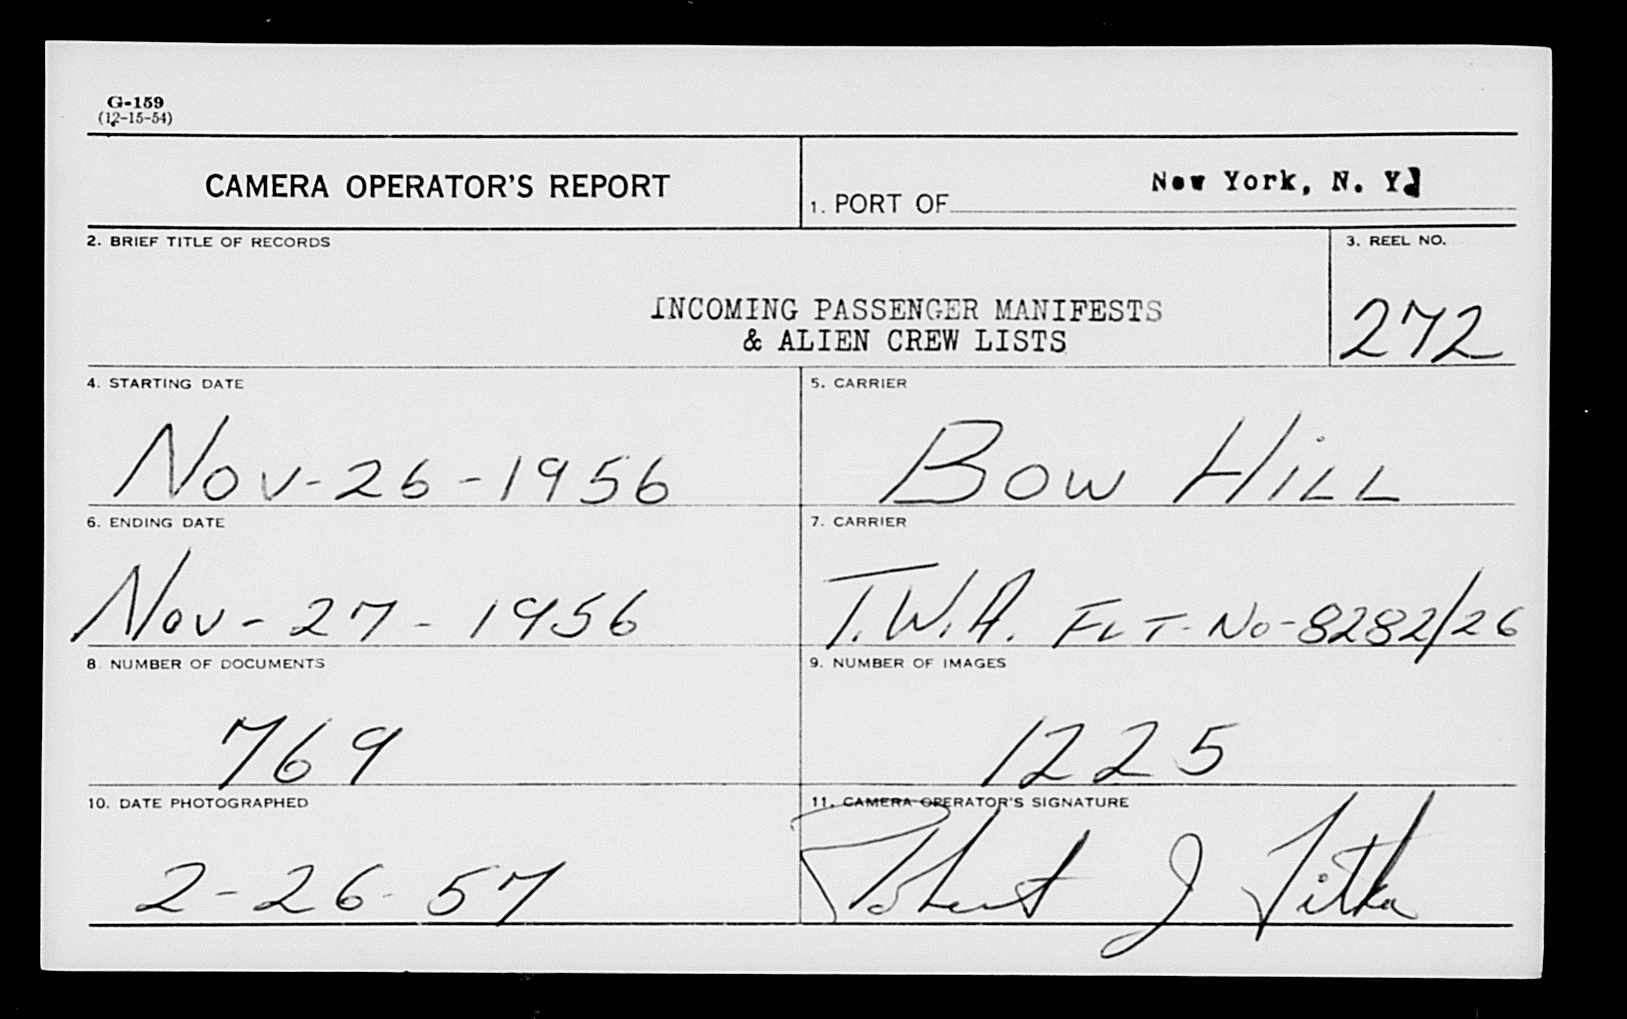 G-159
(12-15-54)
CAMERA OPERATOR'S REPORT
1. PORT OF New York, N. Y.
2. BRIEF TITLE OF RECORDS
INCOMING PASSENGER MANIFESTS
& ALIEN CREW LISTS
3. REEL NO.
272
4. STARTING DATE
Nov-26-1956
5. CARRIER
BOW HiLL
6. ENDING DATE
Nov-27-1956
7. CARRIER
T.W.A. FLT-No-8282/26
8. NUMBER OF DOCUMENTS
769
9. NUMBER OF IMAGES
1225
10. DATE PHOTOGRAPHED
2-26-57
11. CAMERA OPERATOR'S SIGNATURE
Robert J